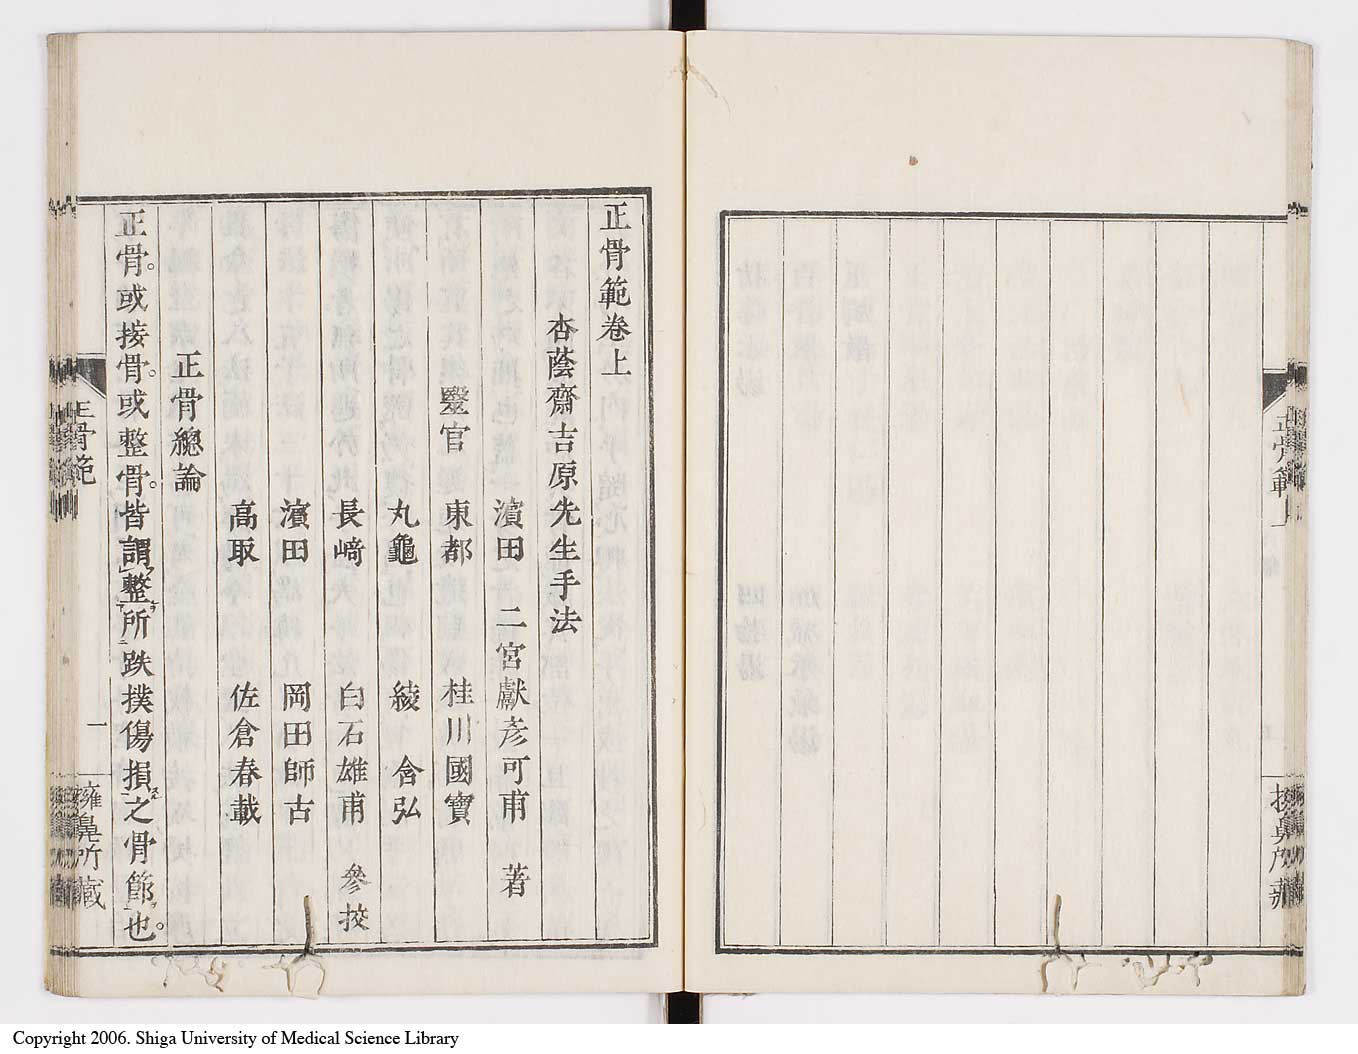 正骨範卷上
杏蔭齋吉原先生手法
濱田 二宮獻彦可甫 著
毉官 東都 桂川國寶
丸龜 綾 含弘
長﨑 白石雄甫 參挍
濱田 岡田師古
高取 佐倉春載
正骨總論
正骨。或接骨。或整骨。皆謂整所跌撲傷損之骨節也。
正骨範
一
擁鼻所藏
正骨範
Copyright 2006. Shiga University of Medical Science Library